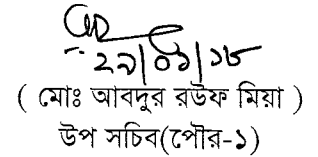 ২৯/০১/১৮
( মোঃ আবদুর রউফ মিয়া )
উপ সচিব(পৌর-১)